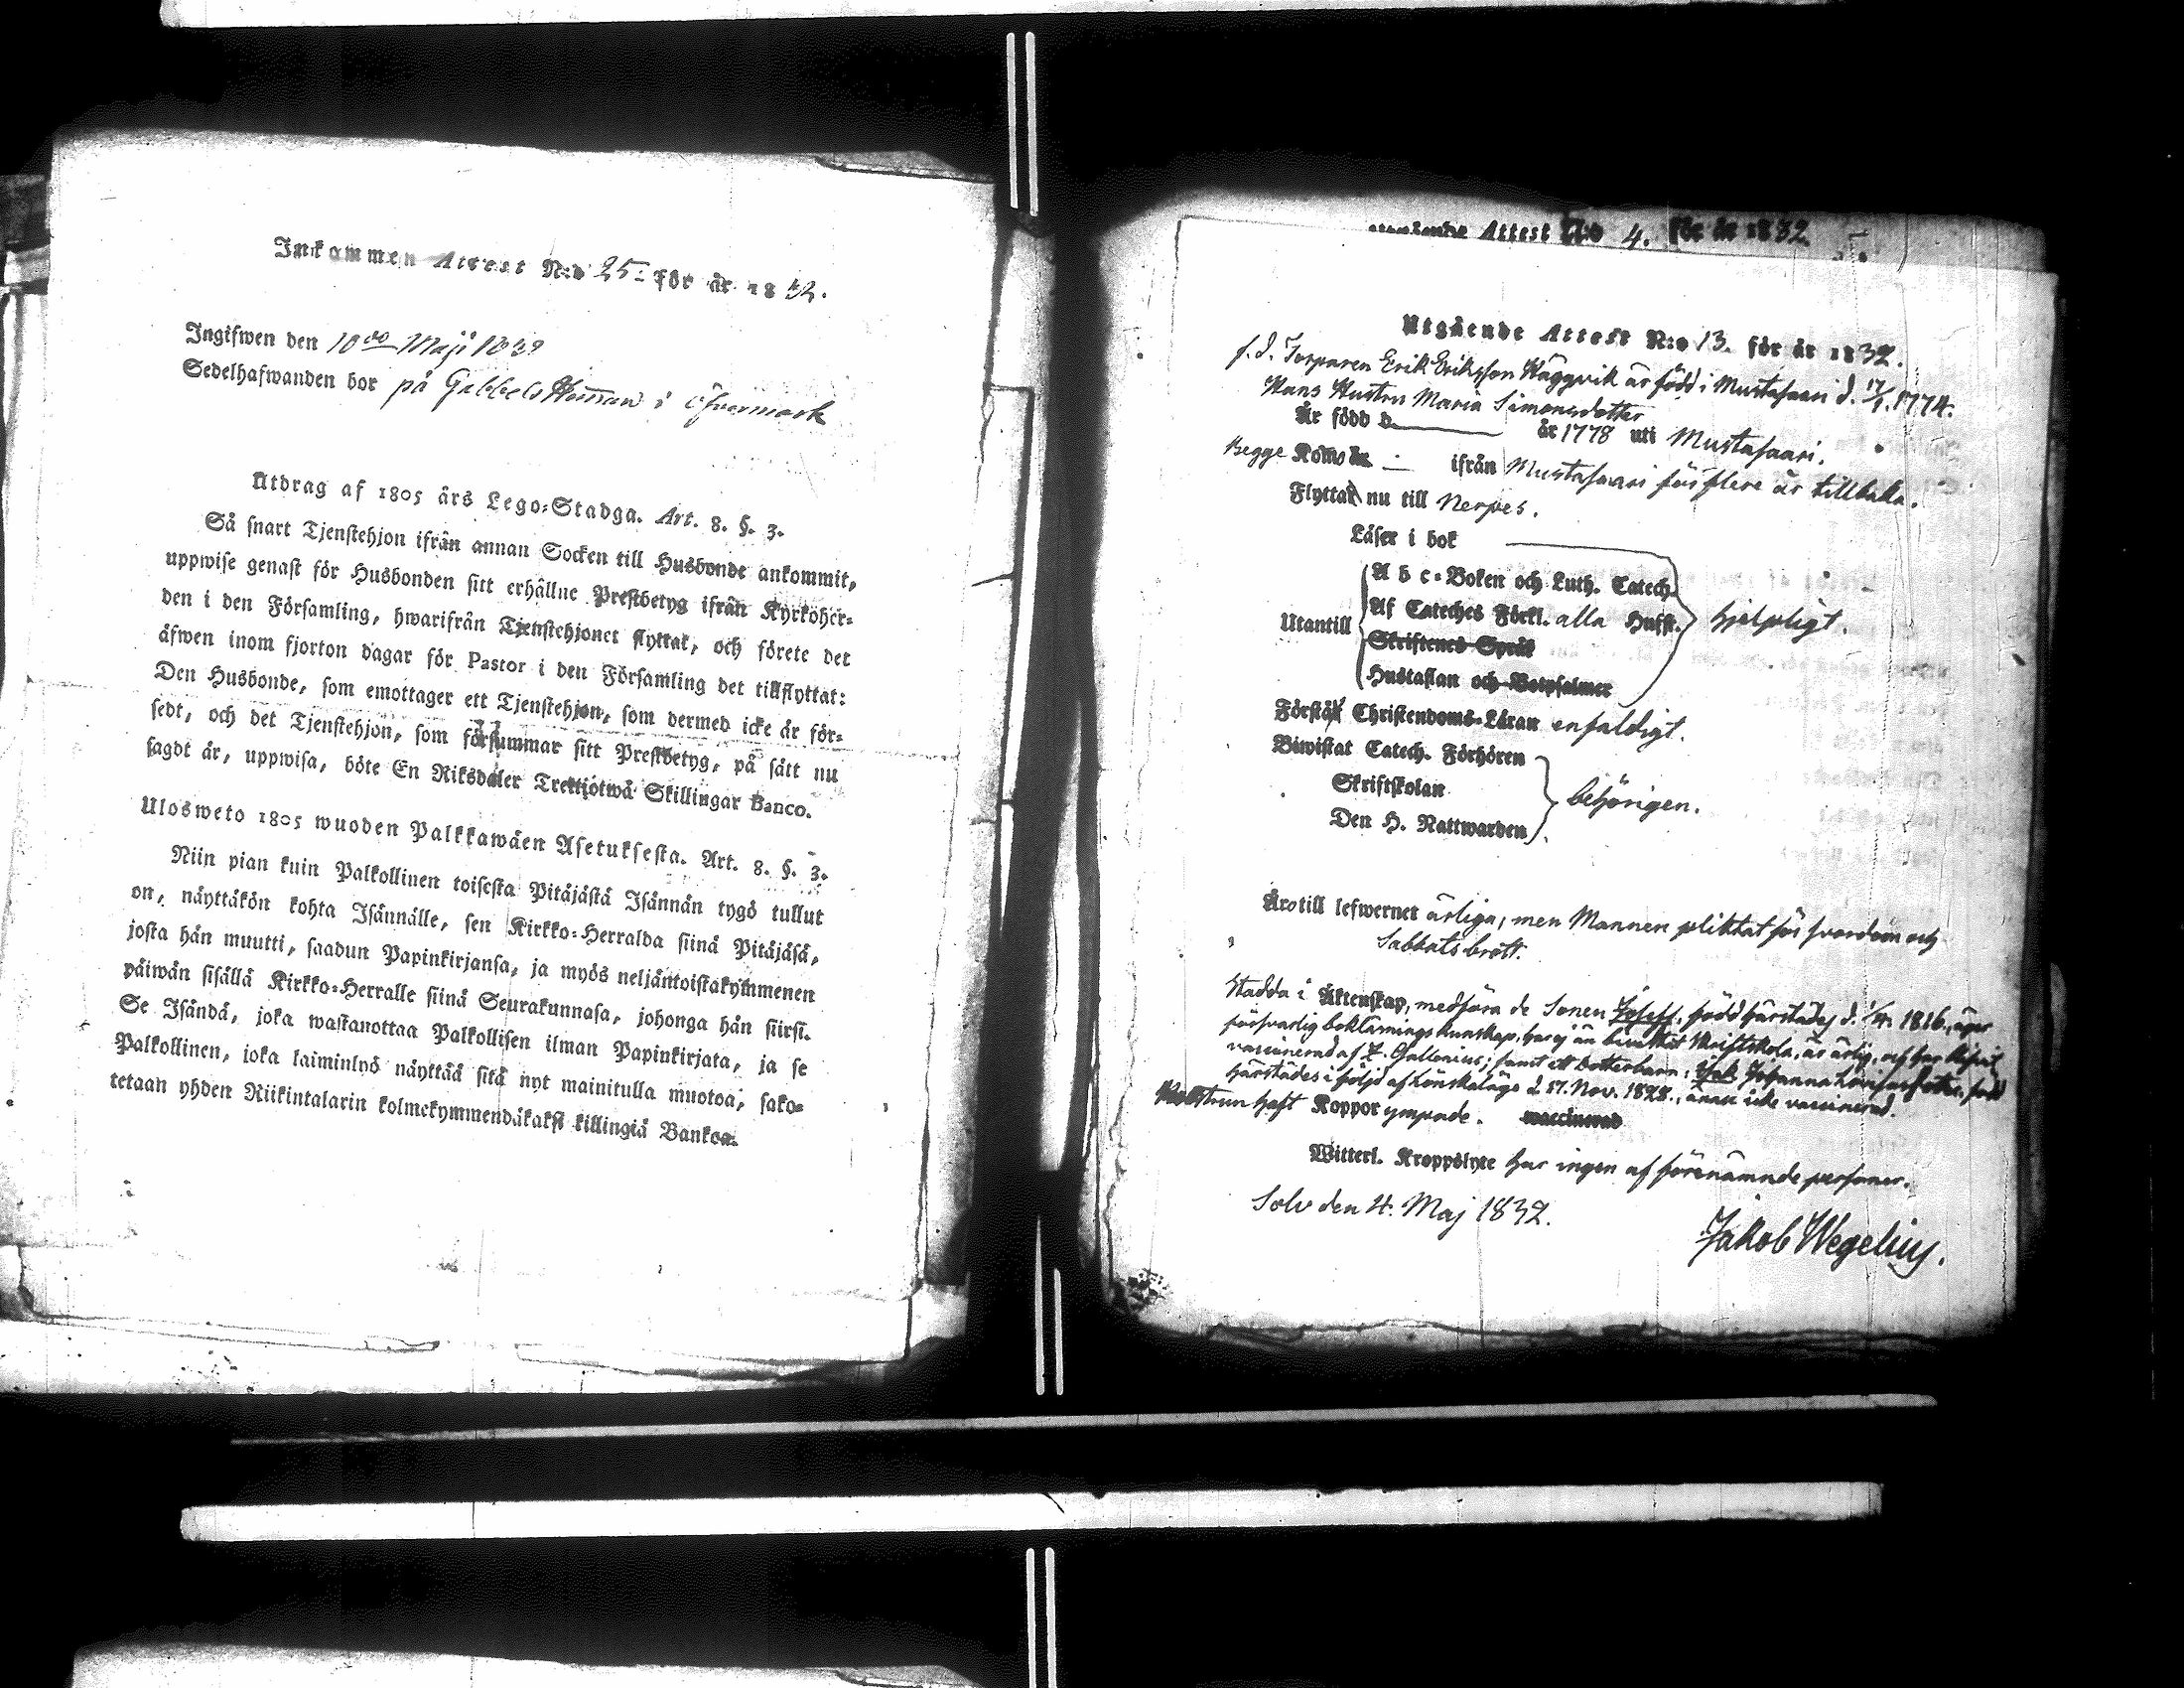 Inkommen Attest N:o 25 för år 1832.
Ingifwen den 10de Maji 1832
Sedelhafwanden bor på Gabbels Hemman i Öfvermark
Utdrag af 1805 års Lego-Stadga. Art. 8. §. 3.
Så snart Tjenstehjon ifrån annan Socken till Husbonde ankommit,
uppwise genast för Husbonden sitt erhållne Prestbetyg ifrån Kyrkoher-
den i den Församling, hwarifrån Tjenstehjonet flyttat, och förete det
äfwen inom fjorton dagar för Pastor i den Församling det tillflyttat:
Den Husbonde, som emottager ett Tjenstehjon, som dermed icke är för-
sedt, och det Tjenstehjon, som försummar sitt Prestbetyg, på sätt nu
sagdt är, uppwisa, böte En Riksdaler Trettiotwå Skillingar Banco.
Ulosweto 1805 wuoden Palkkawäen Asetuksesta. Art. 8. §. 3.
Niin pian kuin Palkollinen toisesta Pitäjästä Isännän tygö tullut
on, näyttäkön kohta Isännälle, sen Kirkko-Herralda siinä Pitäjäsä,
josta hän muutti, saadun Papinkirjansa, ja myös neljäntoistakymmenen
päiwän sisällä Kirkko-Herralle siinä Seurakunnasa, johonga hän siirsi.
Se Isändä, joka wastanottaa Palkollisen ilman Papinkirjata, ja se
Palkollinen, joka laiminlyö näyttää sitä nyt mainitulla muotoa, sako-
tetaan yhden Riikintalarin kolmekymmendäkaksi killingiä Bankoa.
Attest N:o 4. för år 1832
Utgående Attest N:o 13. för år 1832.
f. d. Torparen Erik Eriksson Häggvik är född i Mustasaari d. 17/1. 1774.
Hans Hustru Maria Simonsdotter
Är född d. år 1778 uti Mustasaari.
Begge Komo ifrån Mustasaari för flere år tillbaka.
Flytta nu till Nerpes.
Läser i bok
A b c-Boken och Luth. Catech.
Af Cateches Förkl. alla Husst.
Utantill hjelpligt.
Skriftenes Språk
Hustaflan och Botpsalmer
Förstå Christendoms-Läran enfaldigt.
Biwistat Catech. Förhören
Skriftskolan behörigen.
Den H. Nattwarden
Äro till lefwernet ärliga, men Mannen pliktat för svordom och
Sabbatsbrott.
Stadda i Äktenskap, medföra de Sonen Josef, född härstädes d. 1/4. 1816, äger
försvarlig boklärningskunskap, har ej än bevistat Skriftskola, är ärlig, och har blifvit
vaccinerad af Gallenius; samt ett Dotterbarn: Johanna Lovisa, född
härstädes i följd af Lönskaläge d. 27. Nov. 1828, ännu icke vaccinerad.
haft Koppor ympade. waccinerad
Witterl. Kroppslyte har ingen af förenämnde personer.
Solv den 4. Maj 1832.
Jakob Wegelius.